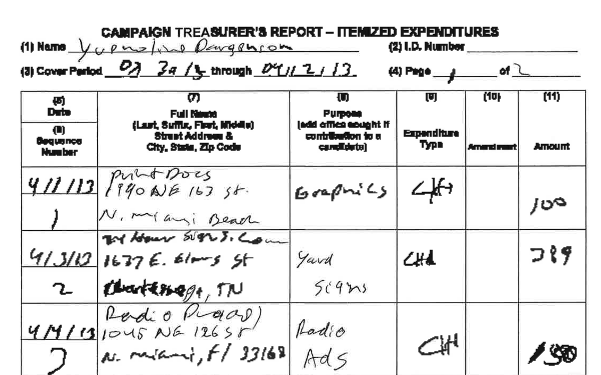 CAMPAIGN TREASURER'S REPORT – ITEMIZED EXPENDITURES
(1) Name
(2) I.D. Number
(3) Cover Period through 04/12/13
(4) Page 1 of 2
(5) Date
(6) Sequence Number
(7) Full Name (Last, Suffix, First, Middle) Street Address & City, State, Zip Code
(8) Purpose (add office sought if contribution to a candidate)
(9) Expenditure Type
(10) Amendment
(11) Amount
4/1/13
1
Print Docs
1990 NE 163 St.
N. Miami Beach
Graphics
100
4/3/13
2
24 Hour Signs. Com
1637 E. St
TN
Yard Signs
CHK
389
4/4/13
3
Radio
1045 NE 126 St
N. Miami, Fl 33168
Radio Ads